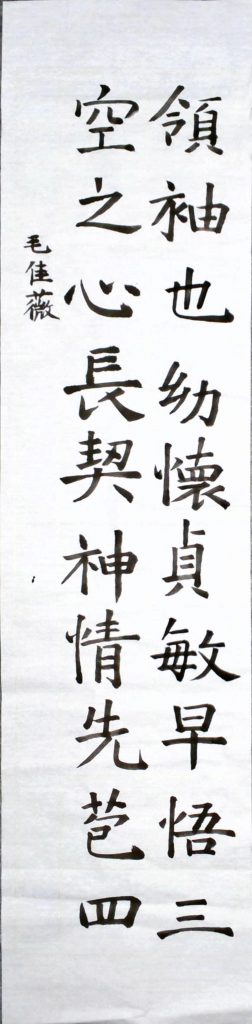 領袖也幼懷貞敏早悟三
空之心長契神情先苞四
毛佳薇